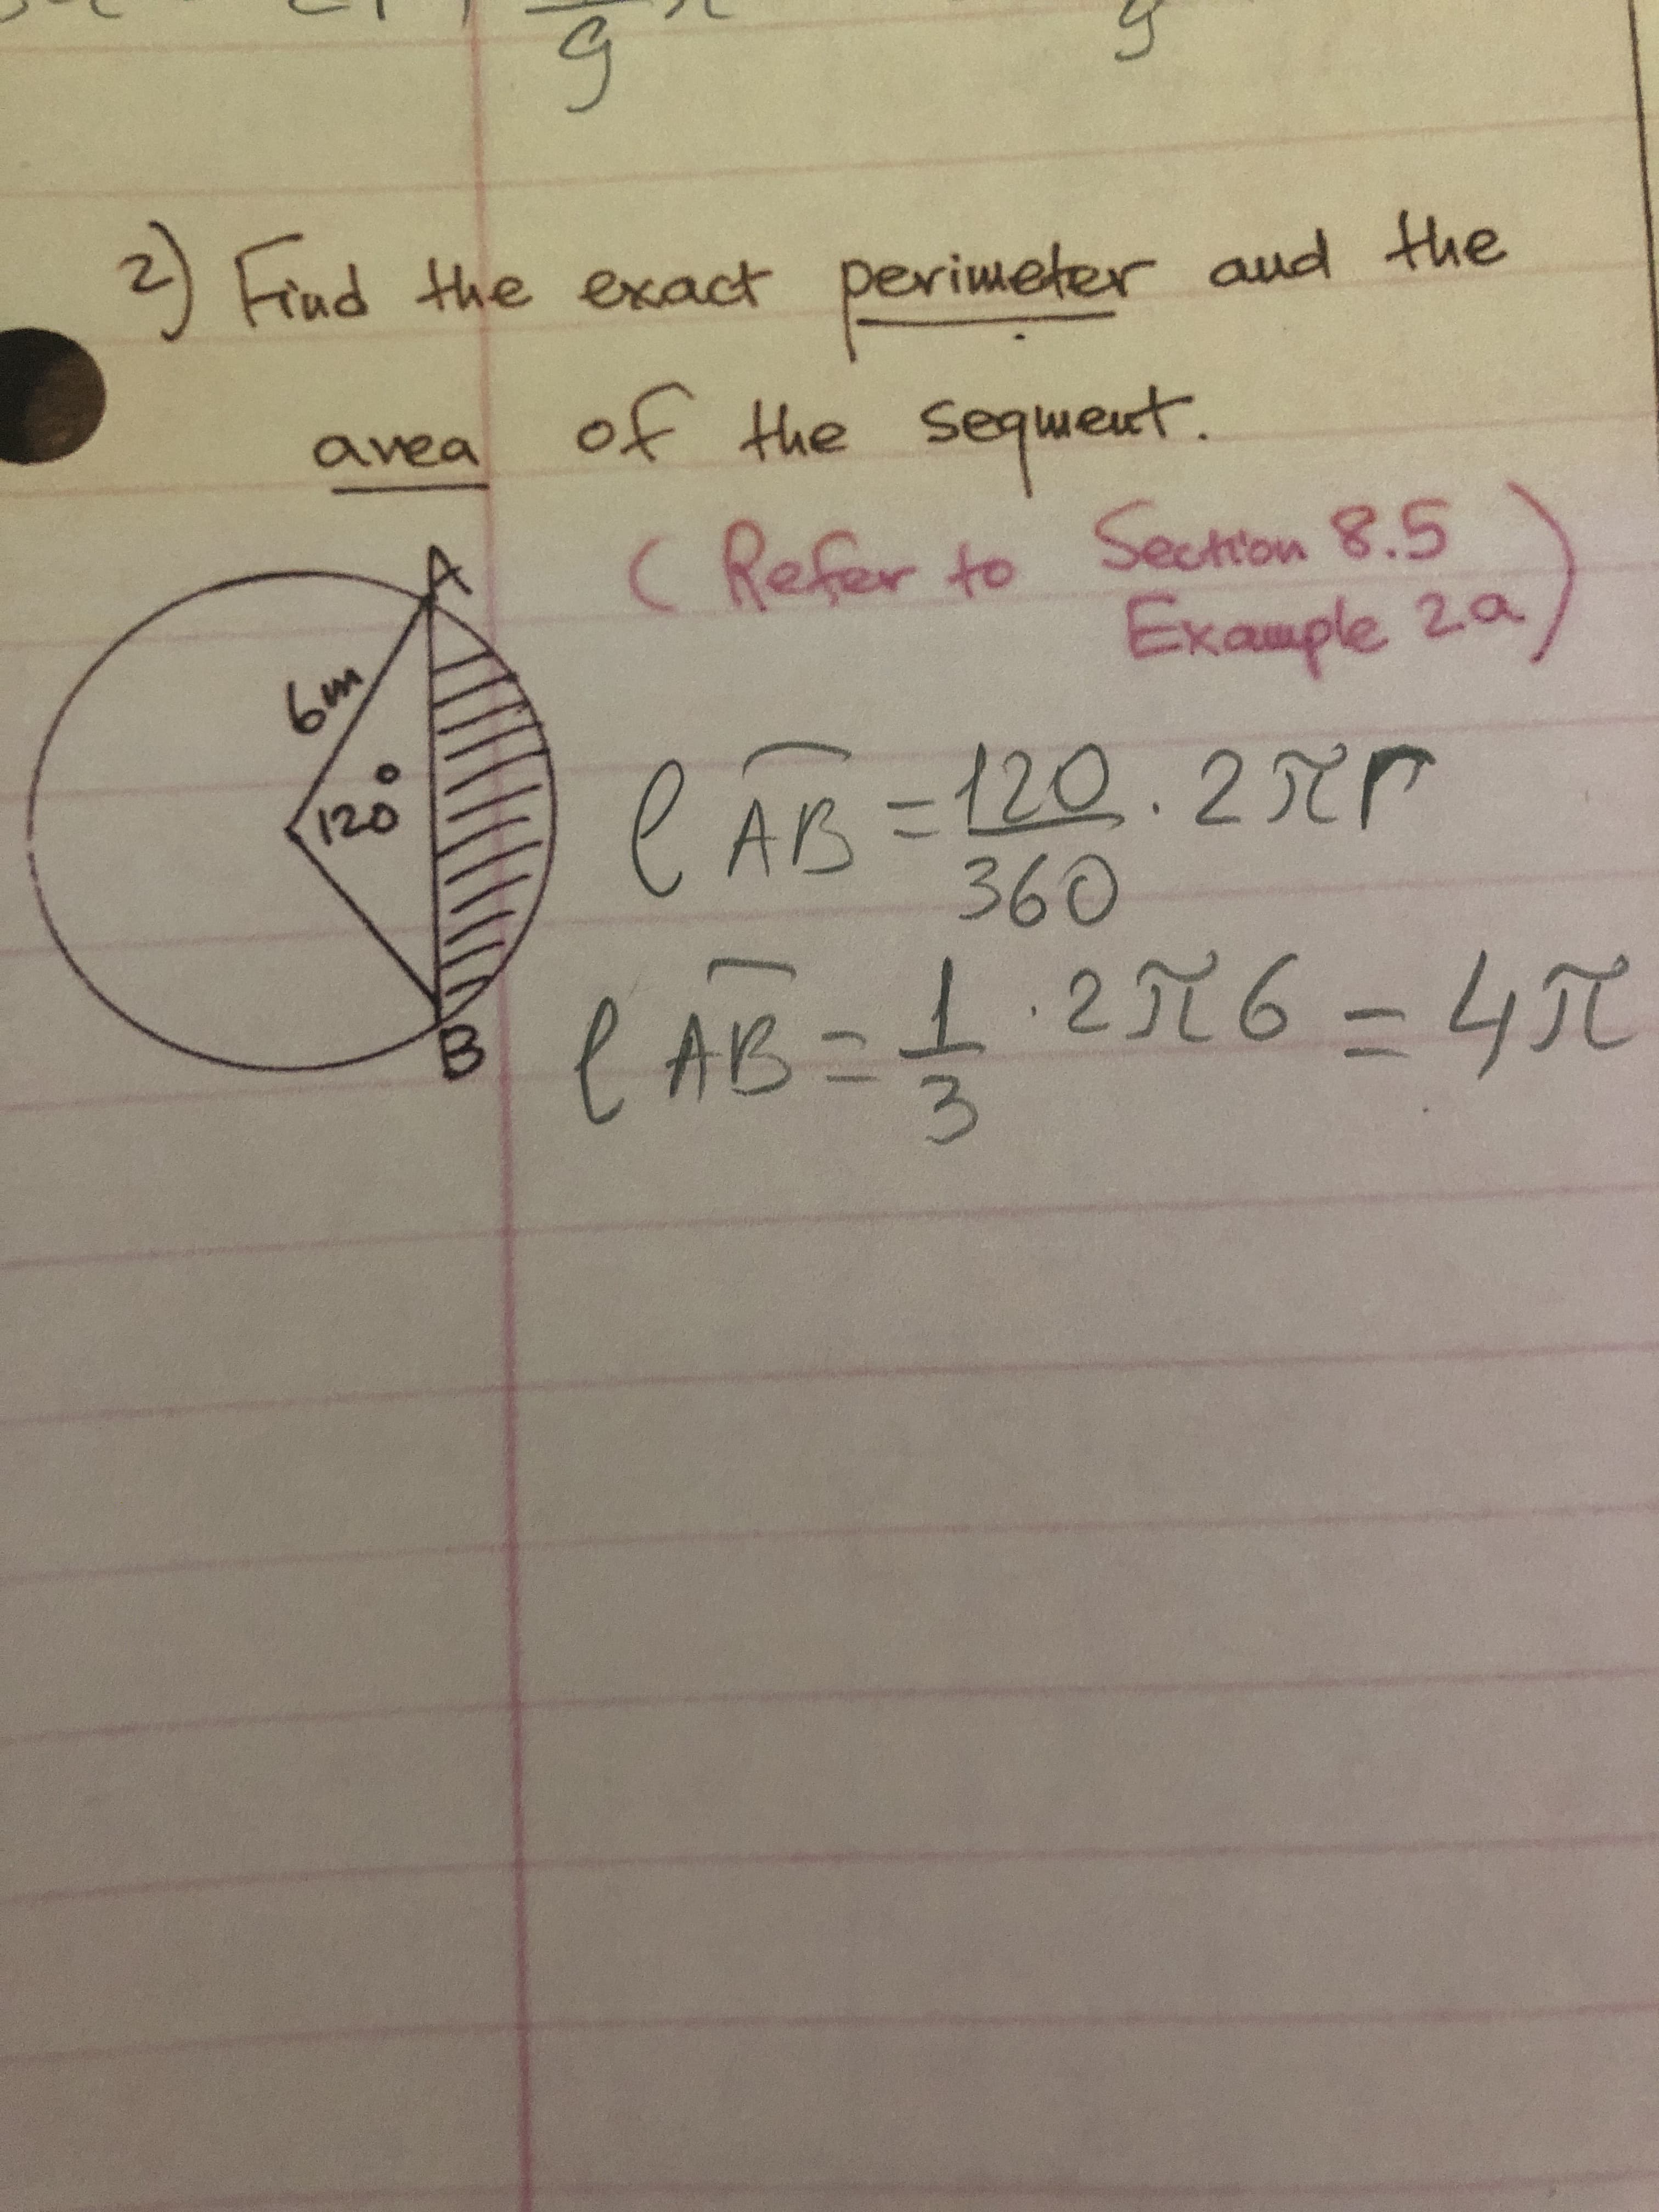 9 9
2) Find the exact perimeter and the
area of the segment.
(Refer to Section 8.5
Example 2a)
A
6m
120°
B
ℓ A͡B = 120/360 · 2πr
ℓ A͡B = 1/3 · 2π6 = 4π